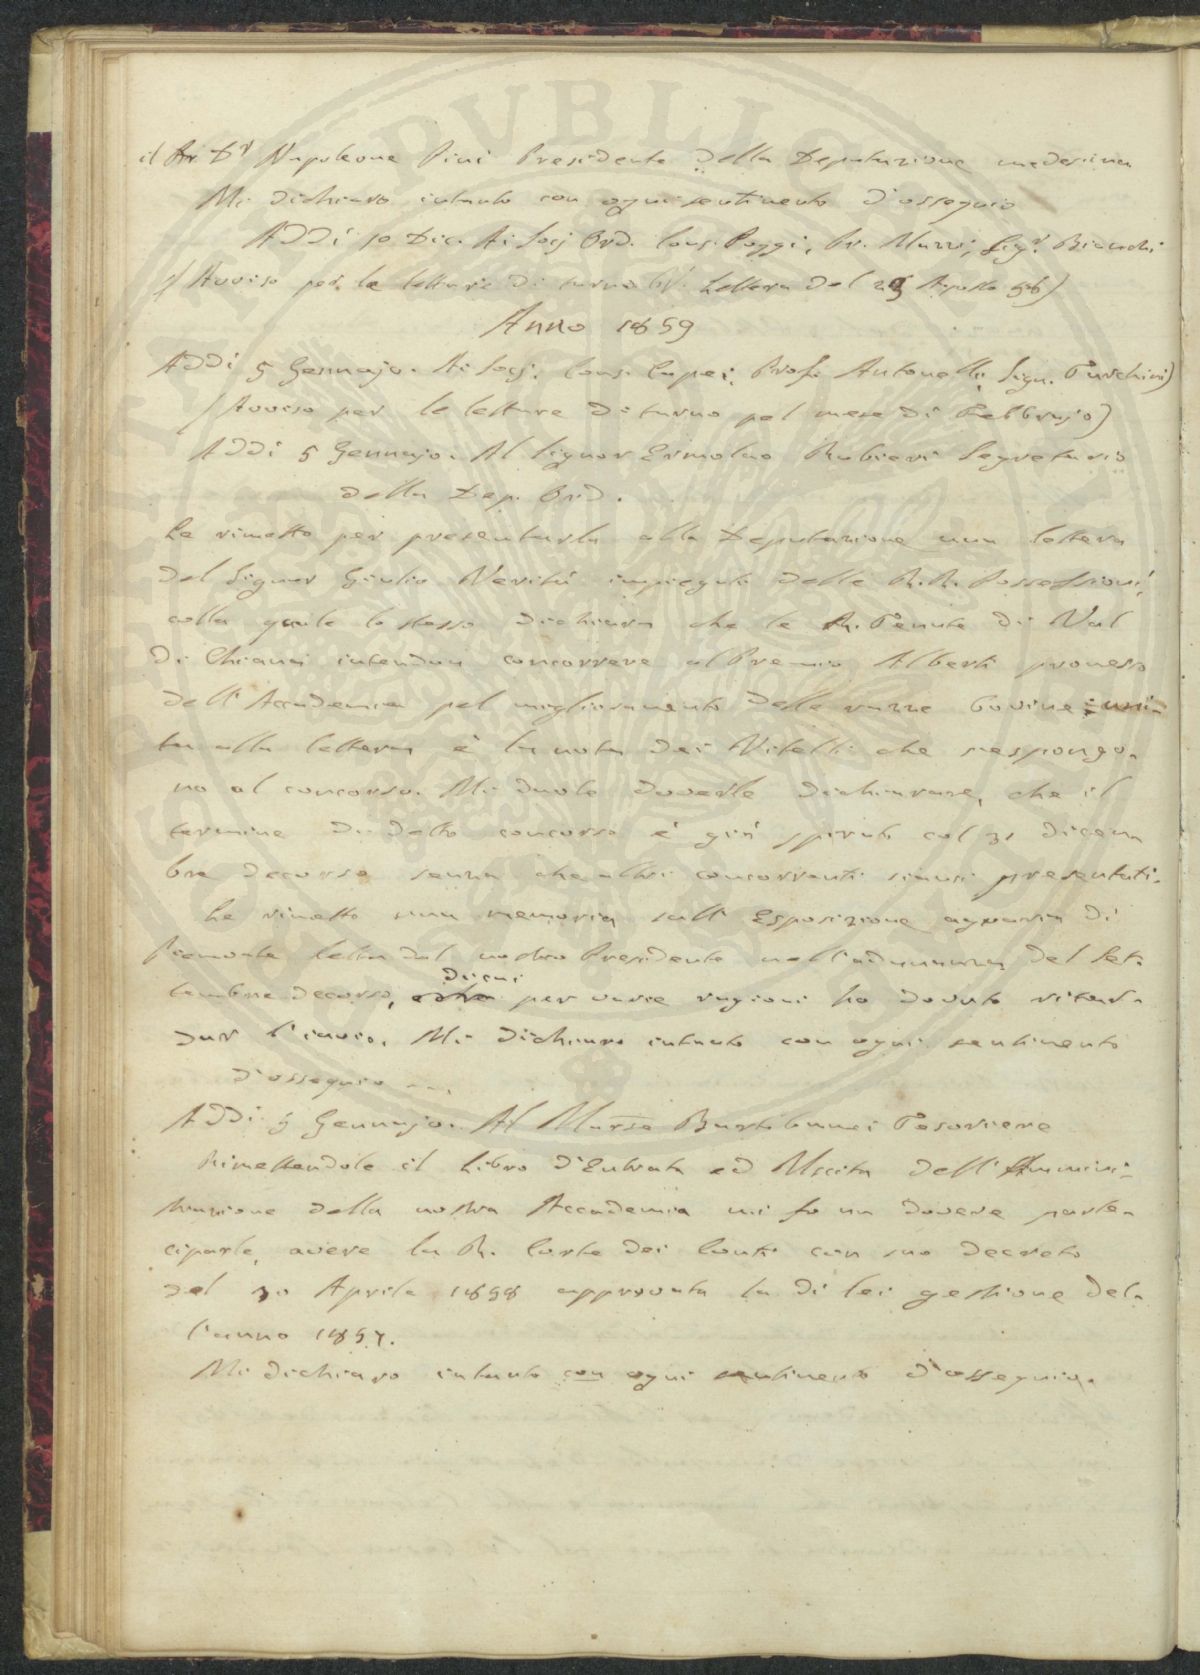 il Dr Napoleone Pini Presidente della Deputazione medesima
Mi dichiaro intanto con ogni sentimento d'ossequio
Addì 10 Dic. Ai Socj Ord. Cons. Poggi, Pr. Murri, Sigr. Bianchi
(Avviso per le letture di turno V. Lettera del 29 Agosto 58)
Anno 1859
Addì 5 Gennajo. Ai Socj. Cons. Capei, Prof. Antonelli Sign. Turchini)
(Avviso per le letture di turno pel mese di Febbrajo)
Addì 5 Gennajo. Al Signor Ermolao Rubieri Segretario
della Dep. Ord.
Le rimetto per presentarla alla Deputazione una lettera
del Signor Giulio Veritù impiegato delle R.R. Possessioni,
colla quale lo stesso dichiara che le R. Tenute di Val
di Chiana intendon concorrere al Premio Alberti promesso
dall'Accademia pel miglioramento delle razze bovine; uni-
ta alla lettera è la nota dei Vitelli che s'espongo-
no al concorso. Mi duole doverle dichiarare, che il
termine di detto concorso è già spirato col 31 dicem
bre decorso senza che altri concorrenti siansi presentati.
Le rimetto una memoria sull'Esposizione agraria di
Piemonte letta dal nostro Presidente nell'adunanza del Set-
tembre decorso, di cui per varie ragioni ho dovuto ritar-
dar l'invio. Mi dichiaro intanto con ogni sentimento
d'ossequio
Addì 5 Gennajo. Al Marse Bartolommei Tesoriere
Rimettendole il Libro d'Entrata ed Uscita dell'Ammini-
strazione della nostra Accademia mi fo un dovere parte-
ciparle, avere la R. Corte dei Conti con suo decreto
del 30 Aprile 1858 approvata la di lei gestione del-
l'anno 1857.
Mi dichiaro intanto con ogni sentimento d'ossequio.